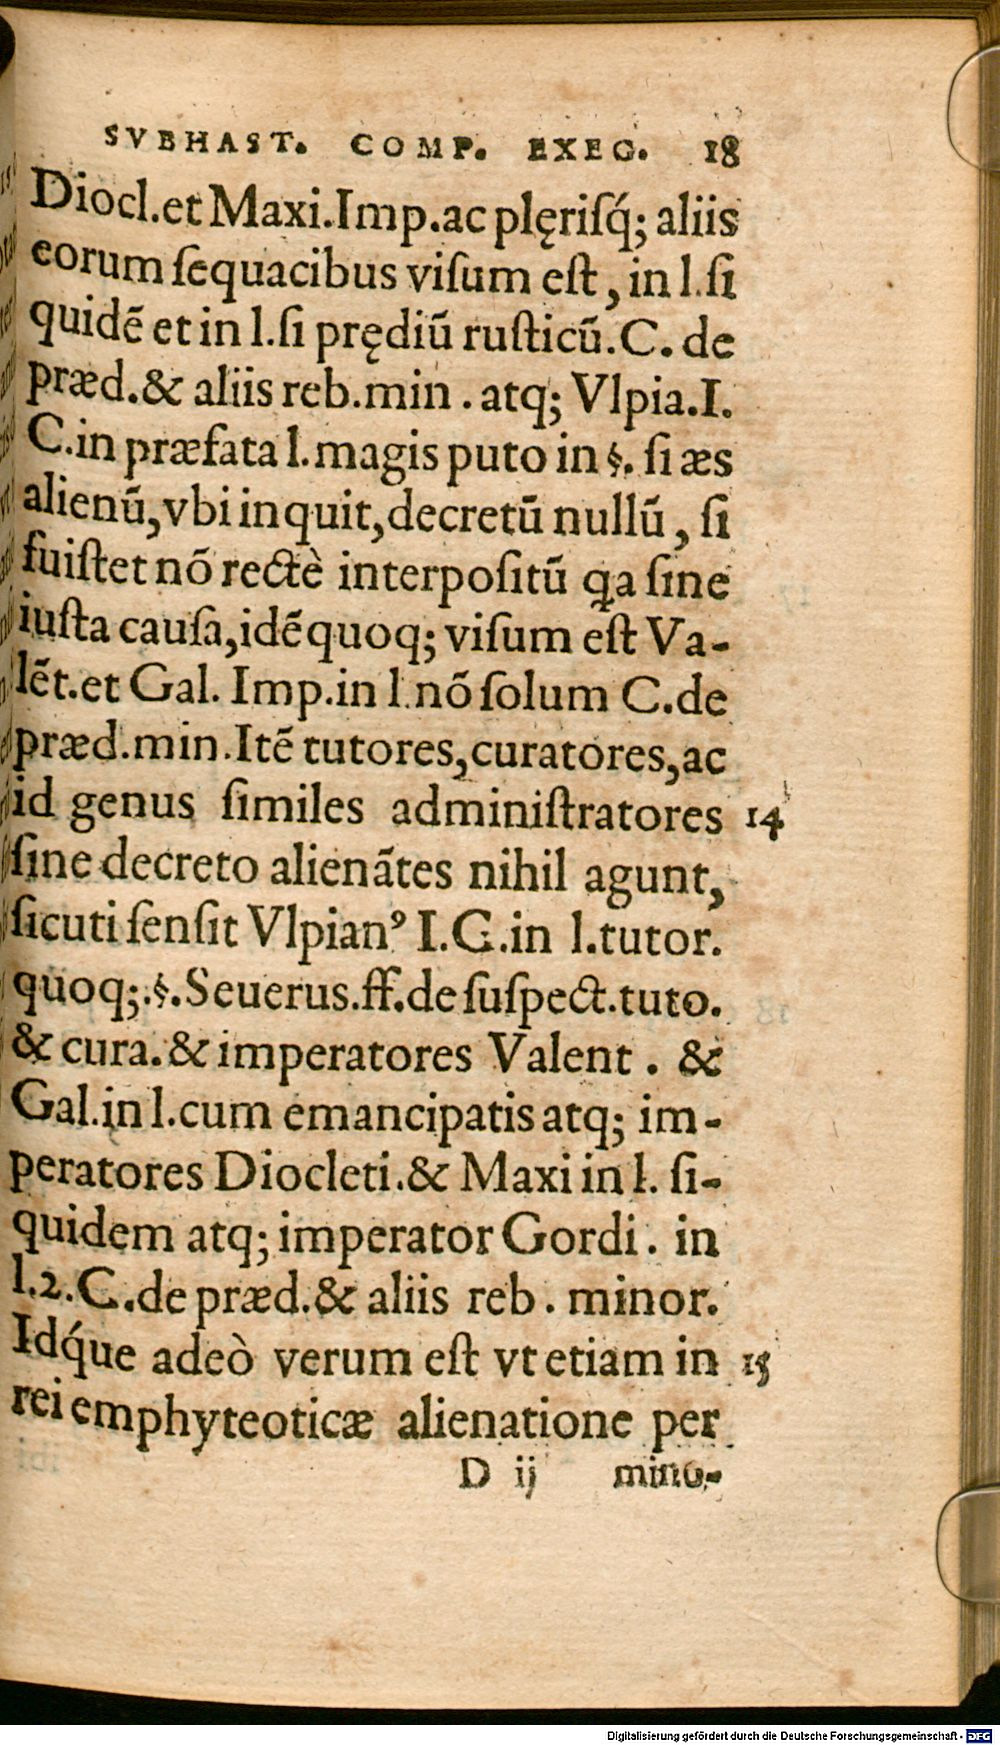 SVBHAST. COMP. EXEG. 18
Diocl.et Maxi.Imp.ac plęriſq́; aliis
eorum ſequacibus viſum eſt, in l.ſi
quidẽ et in l.ſi prędiũ ruſticũ.C. de
præd.& aliis reb.min. atq; Vlpia.I.
C.in præfata l.magis puto in §. ſi æs
alienũ,vbi inquit,decretũ nullũ, ſi
fuiſtet nõ rectè interpoſitũ qa ſine
iuſta cauſa,idẽ quoq; viſum eſt Va-
lẽt.et Gal. Imp.in l.nõ ſolum C.de
præd.min.Itẽ tutores,curatores,ac
id genus ſimiles adminiſtratores 14
ſine decreto alienãtes nihil agunt,
ſicuti ſenſit Vlpianꝰ I.C.in l.tutor.
quoq;.§.Seuerus.ff.de ſuſpect.tuto.
& cura.& imperatores Valent. &
Gal.in l.cum emancipatis atq; im-
peratores Diocleti.& Maxi in l. ſi-
quidem atq; imperator Gordi. in
l.2.C.de præd.& aliis reb. minor.
Idq́ue adeò verum eſt vt etiam in 15
rei emphyteoticæ alienatione per
D ij mino-
Digitalisierung gefördert durch die Deutsche Forschungsgemeinschaft - DFG